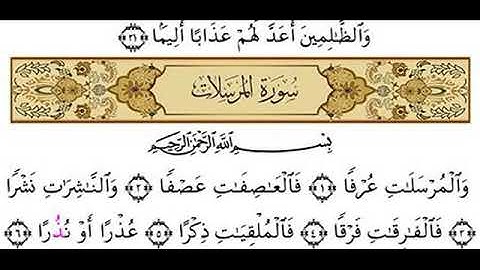 وَالظَّالِمِينَ أَعَدَّ لَهُمْ عَذَابًا أَلِيمًا ﴿٣١﴾
سُورَةُ المُرْسَلَات
بِسْمِ اللَّهِ الرَّحْمَٰنِ الرَّحِيمِ
وَالْمُرْسَلَاتِ عُرْفًا ﴿١﴾ فَالْعَاصِفَاتِ عَصْفًا ﴿٢﴾ وَالنَّاشِرَاتِ نَشْرًا
﴿٣﴾ فَالْفَارِقَاتِ فَرْقًا ﴿٤﴾ فَالْمُلْقِيَاتِ ذِكْرًا ﴿٥﴾ عُذْرًا أَوْ نُذُرًا ﴿٦﴾